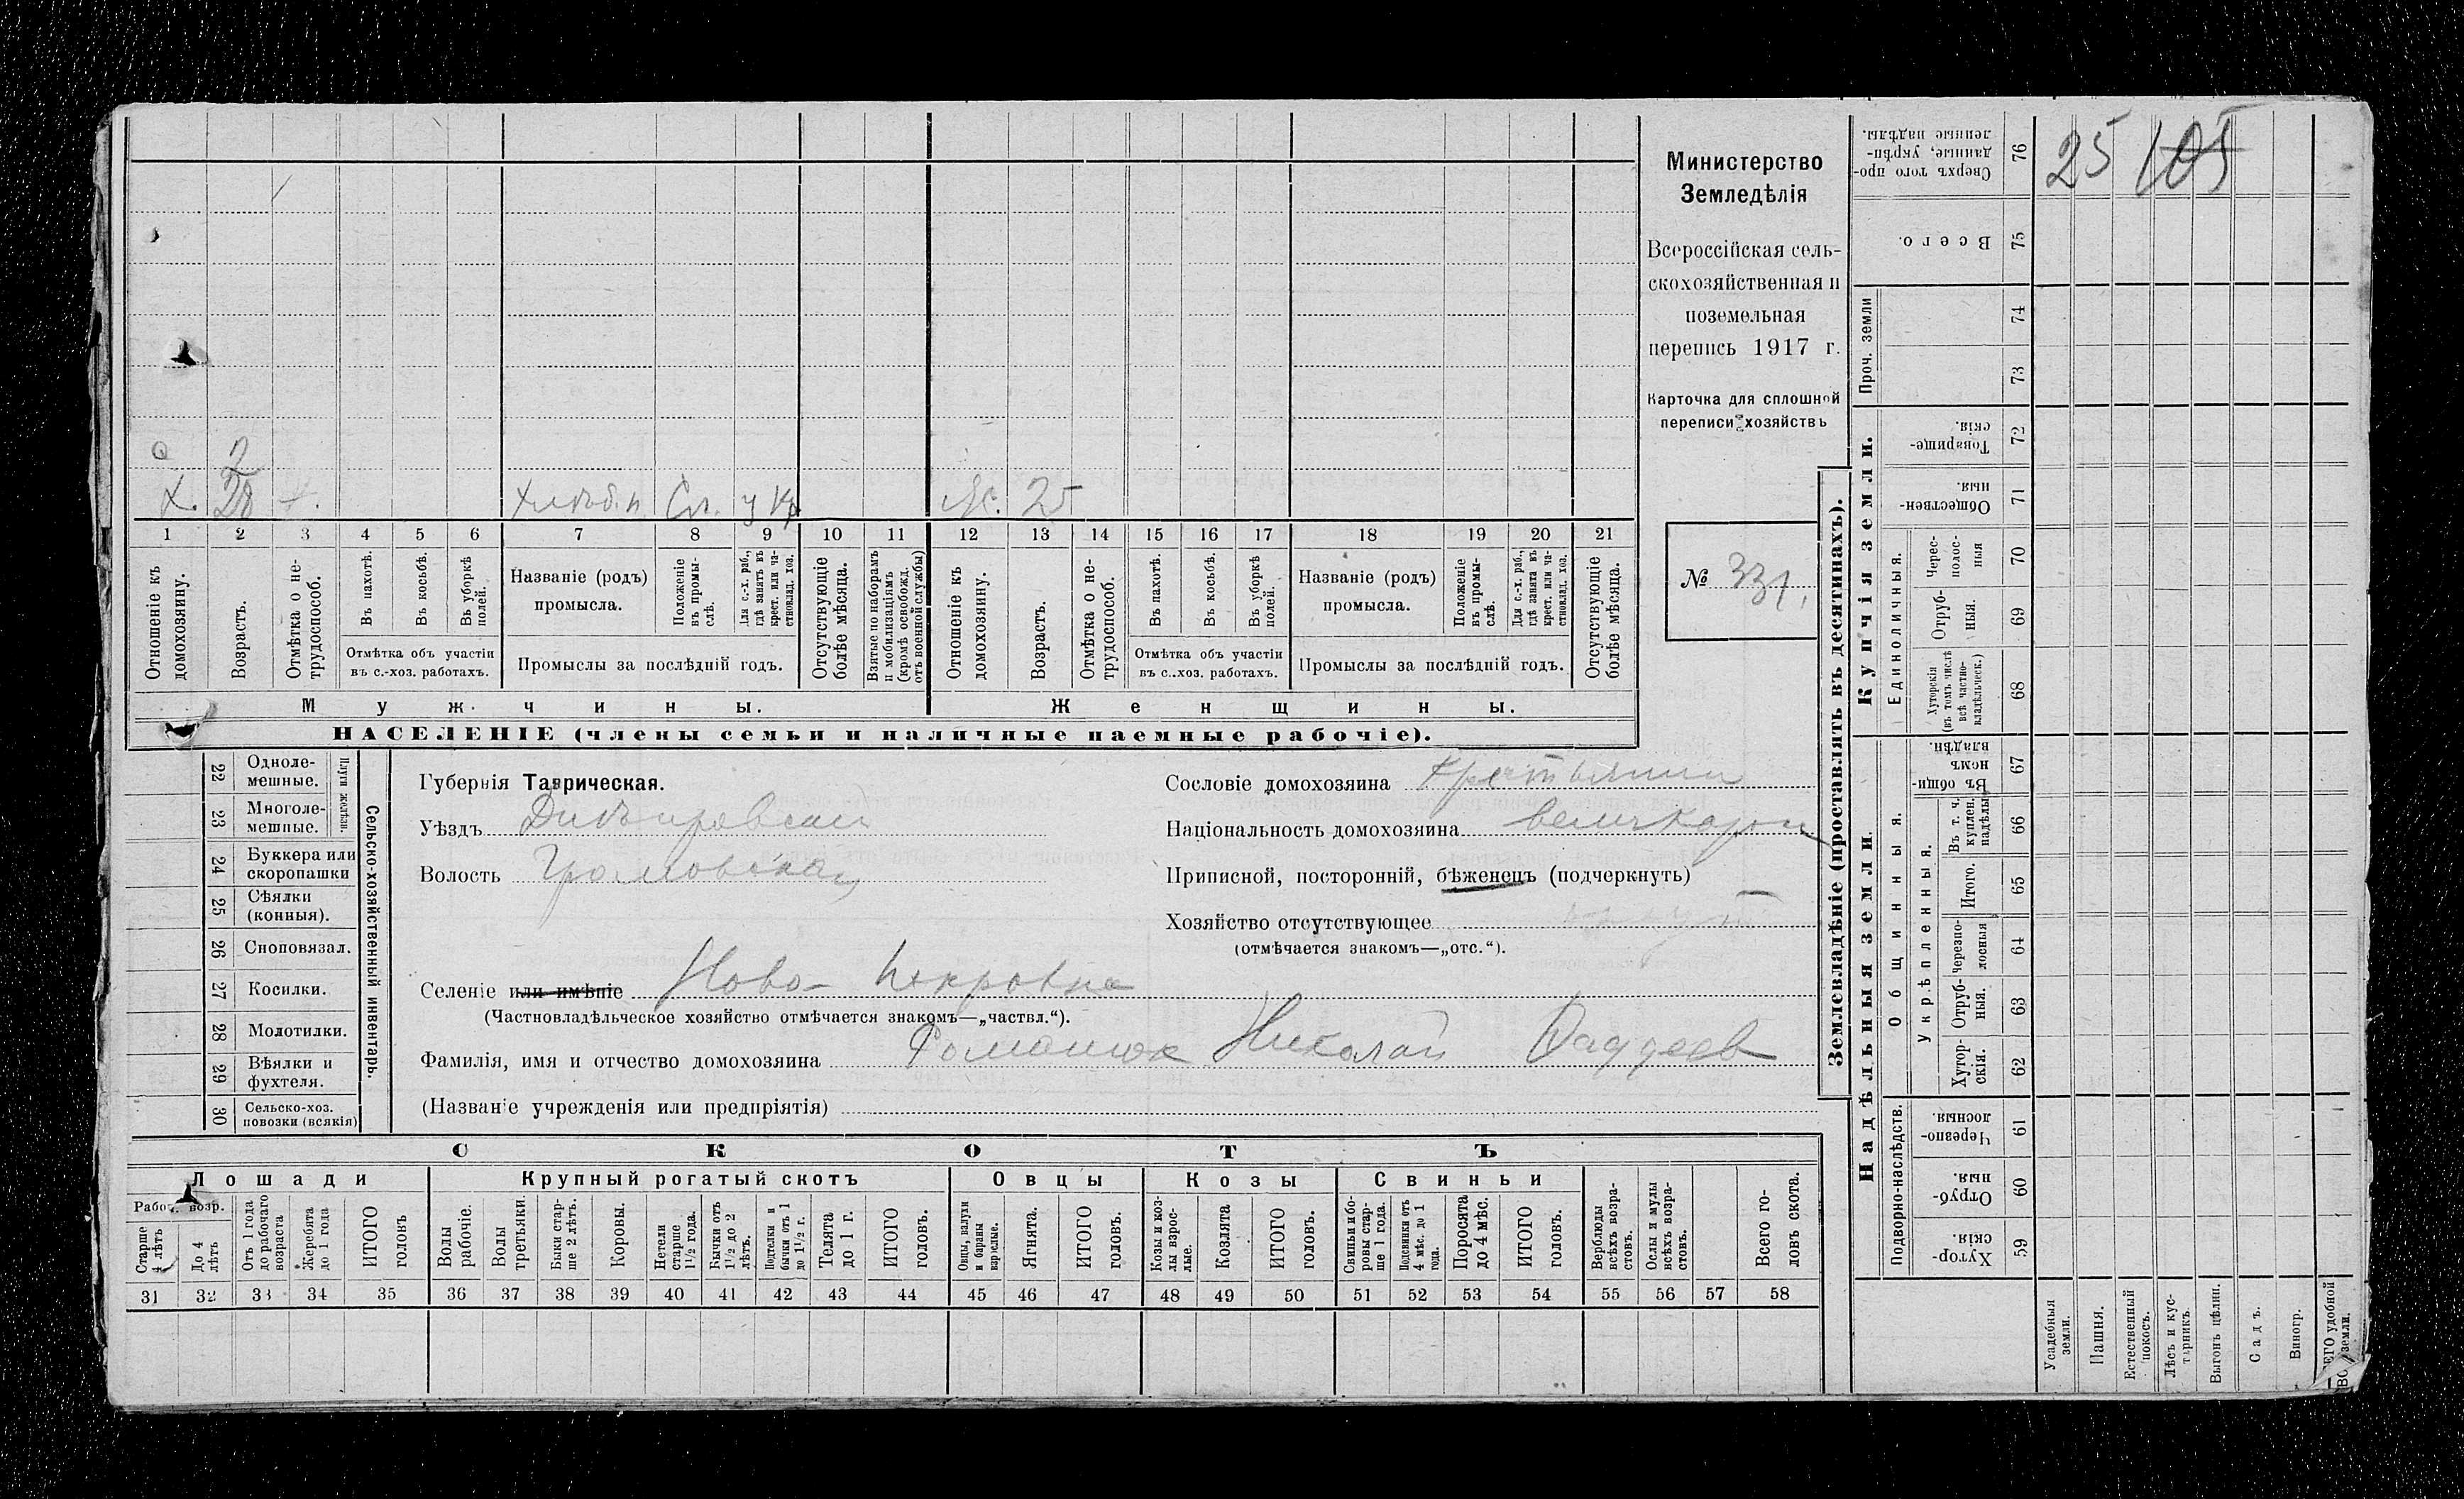 Министерство
Земледѣлія
Всероссійская сель-
скохозяйственная и
поземельная
перепись 1917 г.
Карточка для сплошной
переписи хозяйствъ
№ 331
25 105
2
Х. 28 Хлѣб.п. Сл. у Кр Ж. 25
1 2 3 4 5 6 7 8 9 10 11 12 13 14 15 16 17 18 19 20 21
Отношеніе къ домохозяину.
Возрастъ.
Отмѣтка о не-трудоспособ.
Въ пахотѣ.
Въ косьбѣ.
Въ уборкѣ полей.
Отмѣтка объ участіи
въ с.-хоз. работахъ.
Названіе (родъ)
промысла.
Положеніе въ промы-слѣ.
Для с.-х. раб., гдѣ занятъ въ крест. или ча-стновлад. хоз.
Промыслы за послѣдній годъ.
Отсутствующіе болѣе мѣсяца.
Взятые по наборамъ и мобилизаціямъ (кромѣ освобожд. отъ военной службы)
Отношеніе къ домохозяину.
Возрастъ.
Отмѣтка о не-трудоспособ.
Въ пахотѣ.
Въ косьбѣ.
Въ уборкѣ полей.
Отмѣтка объ участіи
въ с.-хоз. работахъ.
Названіе (родъ)
промысла.
Положеніе въ промы-слѣ.
Для с.-х. раб., гдѣ занята въ крест. или ча-стновлад. хоз.
Промыслы за послѣдній годъ.
Отсутствующіе болѣе мѣсяца.
Мужчины.
Женщины.
НАСЕЛЕНІЕ (члены семьи и наличные наемные рабочіе).
Сельско-хозяйственный инвентарь.
Плуги желѣзн.
22 Одноле-мешные.
23 Многоле-мешные.
24 Буккера или скоропашки
25 Сѣялки (конныя).
26 Сноповязал.
27 Косилки.
28 Молотилки.
29 Вѣялки и фухтеля.
30 Сельско-хоз. повозки (всякія)
Губернія Таврическая.
Уѣздъ Днѣпровскій
Волость Громовская
Сословіе домохозяина крестьянин
Національность домохозяина
Приписной, посторонній, бѣженецъ (подчеркнуть)
Хозяйство отсутствующее
(отмѣчается знакомъ—„отс.“).
Селеніе или имѣніе Ново-Покровка
(Частновладѣльческое хозяйство отмѣчается знакомъ—„частвл.“).
Фамилія, имя и отчество домохозяина Романюк Николай Фаддеев
(Названіе учрежденія или предпріятія)
СКОТЪ
Лошади
Крупный рогатый скотъ
Овцы
Козы
Свиньи
Рабоч. возр.
Старше 4 лѣтъ
До 4 лѣтъ
Отъ 1 года до рабочаго возраста
Жеребята до 1 года
ИТОГО головъ
Волы рабочіе.
Волы третьяки.
Быки стар-ше 2 лѣтъ.
Коровы.
Нетели старше 1½ года.
Бычки отъ 1½ до 2 лѣтъ.
Подтелки и бычки отъ 1 до 1½ г.
Телята до 1 г.
ИТОГО головъ.
Овцы, валухи и бараны взрослые.
Ягнята.
ИТОГО головъ.
Козы и коз-лы взрос-лые.
Козлята
ИТОГО головъ.
Свиньи и бо-ровы стар-ше 1 года.
Подсвинки отъ 4 мѣс. до 1 года.
Поросята до 4 мѣс.
ИТОГО головъ.
Верблюды всѣхъ возра-стовъ.
Ослы и мулы всѣхъ возра-стовъ.
Всего го-ловъ скота.
31 32 33 34 35 36 37 38 39 40 41 42 43 44 45 46 47 48 49 50 51 52 53 54 55 56 57 58
Землевладѣніе (проставлять въ десятинахъ).
Купчія земли.
Надѣльныя земли.
Сверхъ того про-данные, укрѣп-ленные надѣлы. 76
Всего. 75
Проч. земли
74
73
Товарище-скія. 72
Обществен-ныя 71
Единоличныя.
Черес-полос-ныя 70
Отруб-ныя. 69
Хуторскія (въ томъ числѣ всѣ частно-владѣльческ.) 68
Общинныя.
Въ общин-номъ владѣн. 67
Укрѣпленныя.
Въ т. ч. куплен. надѣлы 66
Итого. 65
Черезпо-лосныя 64
Отруб-ныя. 63
Хутор-скія. 62
Подворно-наслѣдств.
Черезпо-лосныя 61
Отруб-ныя. 60
Хутор-скія. 59
Усадебныя земли.
Пашня.
Естественный покосъ.
Лѣсъ и кус-тарникъ.
Выгонъ цѣлин.
Садъ.
Виногр.
ВСЕГО удобной земли.